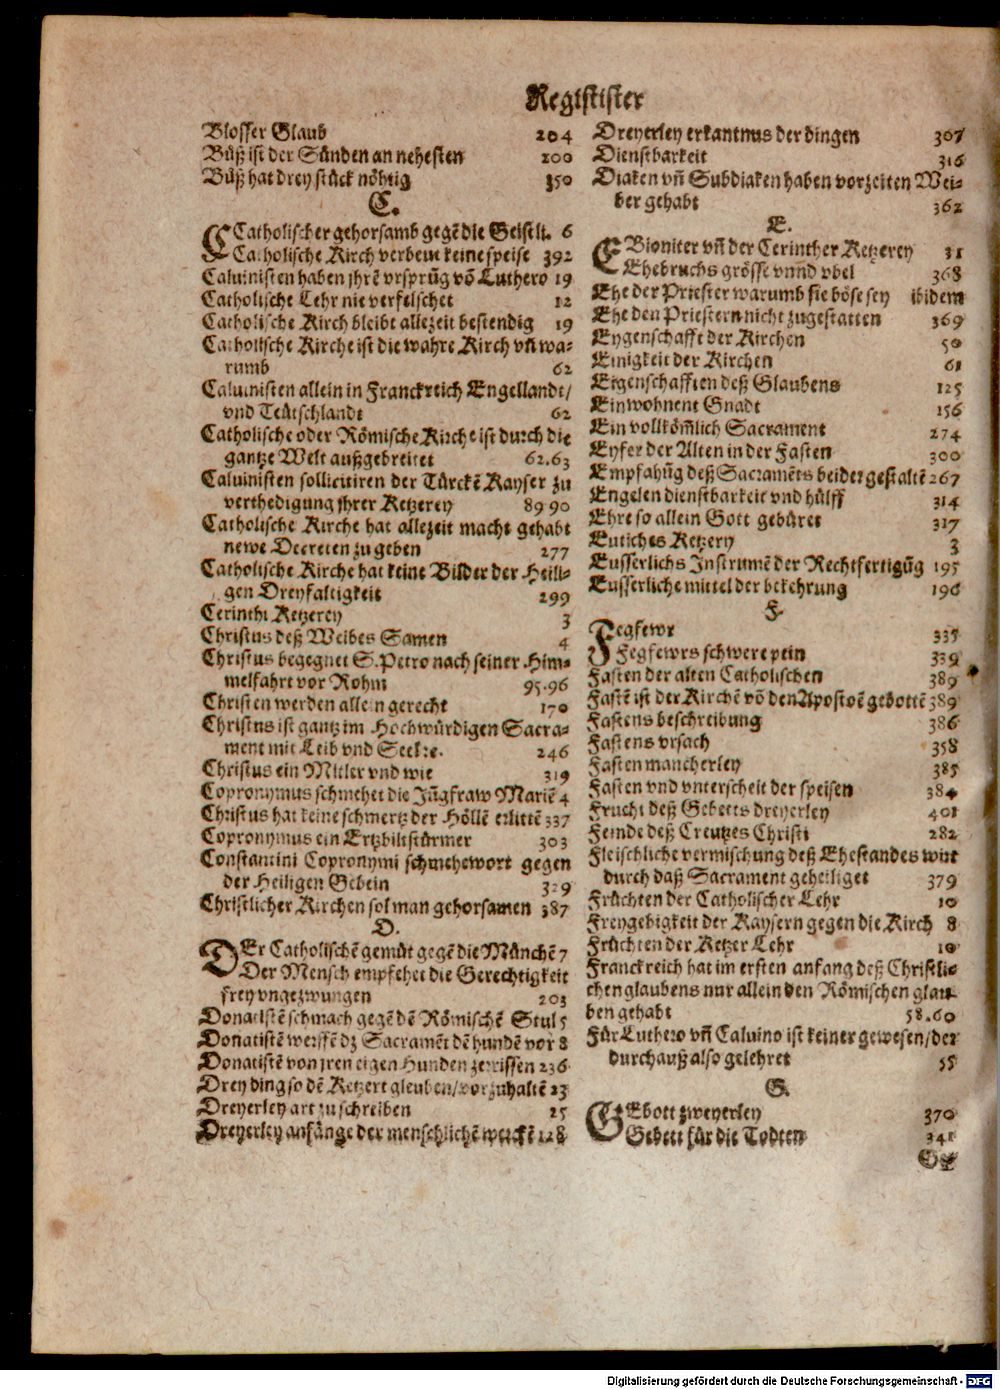 Registister
Blosser Glaub 204
Büß ist der Sünden an nehesten 200
Büß hat drey stück nöhtig 350
C.
CCatholischer gehorsamb gegē die Geistli. 6
Catholische Kirch verbeut keine speise 392
Caluinisten haben jhrē vrsprūg vō Luthero 19
Catholische Lehr nie verfelschet 12
Catholische Kirch bleibt allezeit bestendig 19
Catholische Kirche ist die wahre Kirch vn̄ wa-
rumb 62
Caluinisten allein in Franckreich Engellandt/
vnd Teütschlandt 62
Catholische oder Römische Kirche ist durch die
gantze Welt außgebreitet 62.63
Caluinisten sollicitiren der Türckē Kayser zu
verthedigung jhrer Ketzerey 89 90
Catholische Kirche hat allezeit macht gehabt
newe Decreten zu geben 277
Catholische Kirche hat keine Bilder der Heili-
gen Dreyfaltigkeit 299
Cerinthi Ketzerey 3
Christus deß Weibes Samen 4
Christus begegnet S. Petro nach seiner Him-
melfahrt vor Rohm 95.96
Christen werden allein gerecht 170
Christus ist gantz im Hochwürdigen Sacra-
ment mit Leib vnd Seele. 246
Christus ein Mitler vnd wie 319
Copronymus schmehet die Jūgfraw Mariē 4
Christus hat keine schmertz der Höllē erlittē 337
Copronymus ein Ertzbiltstürmer 303
Constantini Copronymi schmehewort gegen
der Heiligen Gebein 329
Christlicher Kirchen sol man gehorsamen 387
D.
DEr Catholischē gemüt gegē die Münchē 7
Der Mensch empfehet die Gerechtigkeit
frey vngezwungen 203
Donatistē schmach gegē dē Römischē Stul 5
Donatistē werffē dz Sacramēt dē hundē vor 8
Donatistē von jren eigen Hunden zerrissen 236
Drey ding so dē Ketzert gleuben/vorzuhaltē 23
Dreyerley art zu schreiben 25
Dreyerley anfänge der menschlichē werckē 128
Dreyerley erkantnus der dingen 307
Dienstbarkeit 316
Diaken vn̄ Subdiaken haben vorzeiten Wei-
ber gehabt 362
E.
EBioniter vn̄ der Cerinther Ketzerey 31
Ehebruchs grösse vnnd vbel 368
Ehe der Priester warumb sie böse sey ibidem
Ehe den Priestern nicht zugestatten 369
Eygenschafft der Kirchen 50
Einigkeit der Kirchen 61
Eigenschafften deß Glaubens 125
Einwohnent Gnadt 156
Ein vollkōmlich Sacrament 274
Eyfer der Alten in der Fasten 300
Empfahūg deß Sacramēts beider gestaltē 267
Engelen dienstbarkeit vnd hülff 314
Ehre so allein Gott gebüret 317
Eutiches Ketzery 3
Eusserlichs Instrumē der Rechtfertigūg 195
Eusserliche mittel der bekehrung 196
F.
Fegfewr 335
Fegfewrs schwere pein 339
Fasten der alten Catholischen 389
Fastē ist der Kirchē vō den Apostoē gebottē 389
Fastens beschreibung 386
Fastens vrsach 358
Fasten mancherley 385
Fasten vnd vnterscheit der speisen 384
Frucht deß Gebetts dreyerley 401
Feinde deß Creutzes Christi 282
Fleischliche vermischung deß Ehestandes wirt
durch daß Sacrament geheiliget 379
Früchten der Catholischer Lehr 10
Freygebigkeit der Kaysern gegen die Kirch 8
Früchten der Ketzer Lehr 10
Franckreich hat im ersten anfang deß Christli-
chen glaubens nur allein den Römischen glau-
ben gehabt 58.60
Für Luthero vn̄ Caluino ist keiner gewesen/der
durchauß also gelehret 55
G.
GEbott zweyerley 370
Gebett für die Todten 341
Ge
Digitalisierung gefördert durch die Deutsche Forschungsgemeinschaft - DFG